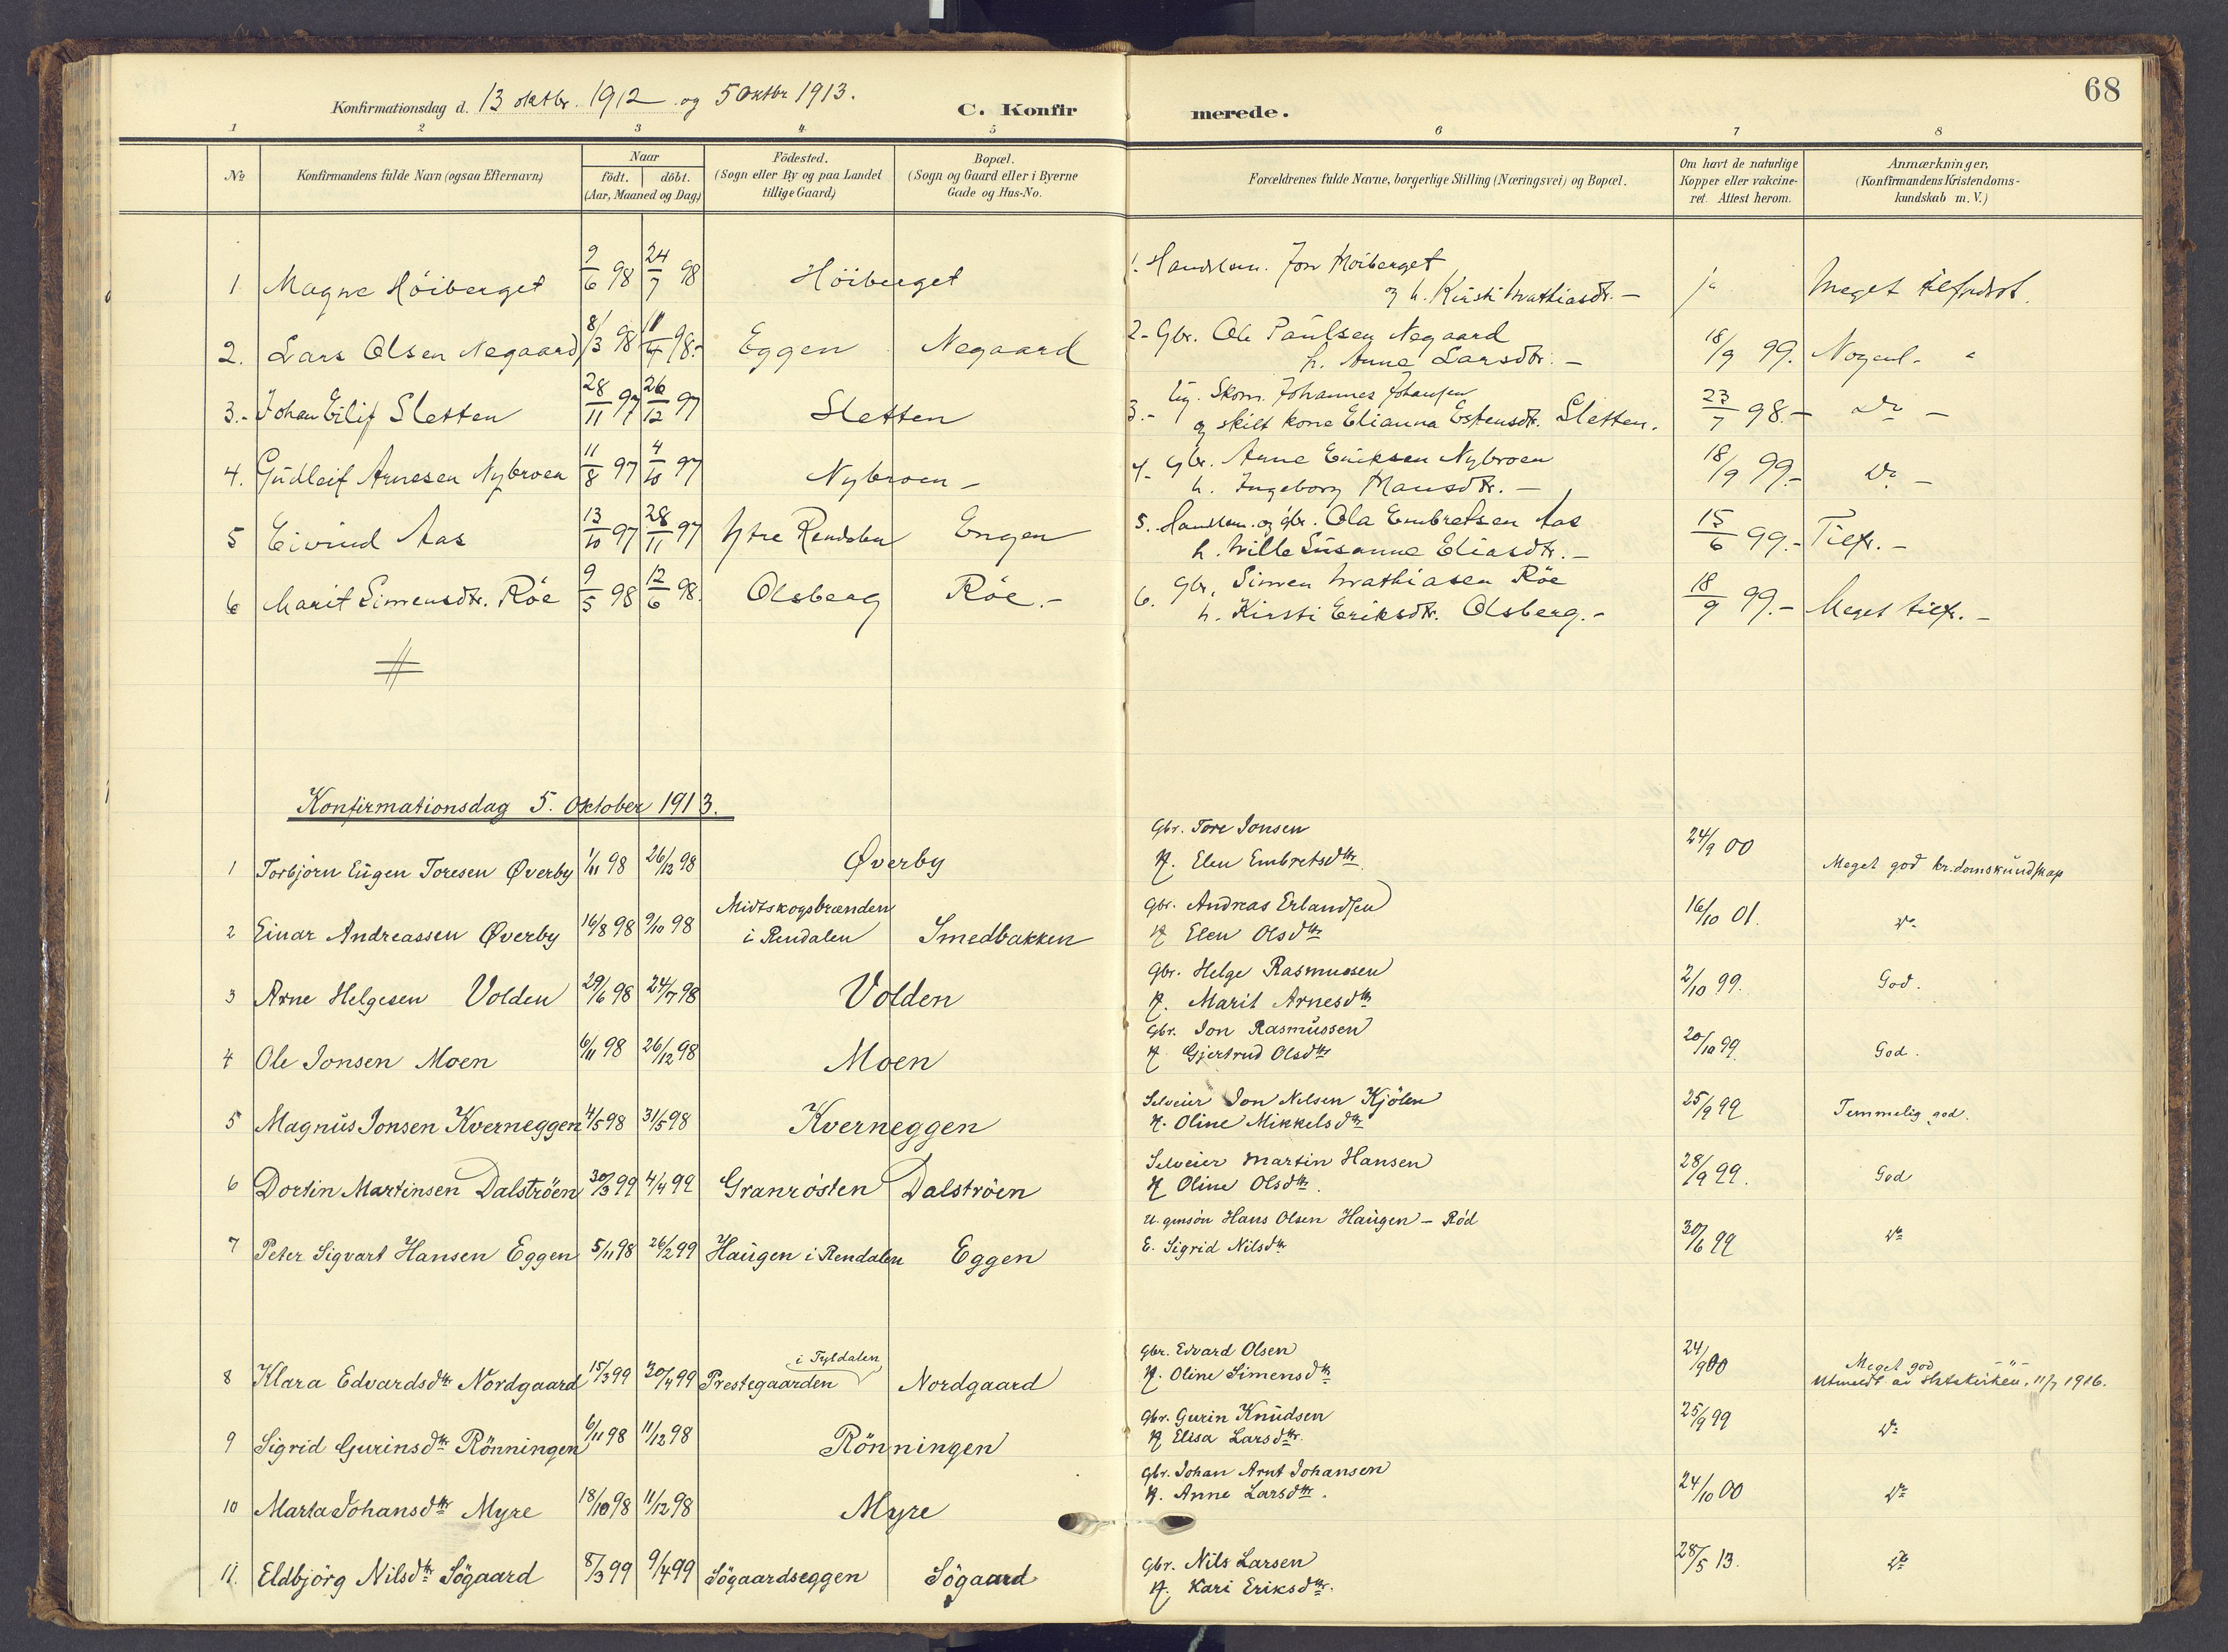 68
Konfirmationsdag d. 13 oktbr. 1912 og 5 Oktbr 1913.
C. Konfirmerede.
1 2 3 4 5 6 7 8
No
Konfirmandens fulde Navn (ogsaa Efternavn)
Naar
födt. döbt.
(Aar, Maaned og Dag)
Födested.
(Sogn eller By og paa Landet
tillige Gaard)
Bopæl.
(Sogn og Gaard eller i Byerne
Gade og Hus-No.
Forældrenes fulde Navne, borgerlige Stilling (Næringsvei) og Bopæl.
Om havt de naturlige
Kopper eller vakcine-
ret. Attest herom.
Anmærkninger,
(Konfirmandens Kristendoms-
kundskab m. V.)
1 Magne Höiberget 9/6 98 24/7 98 Höiberget 1. Handelsm. Jon Höiberget
og h. Kirsti Mathiasdtr. - ja Meget tilfredsst.
2. Lars Olsen Negaard 8/3 98 11/4 98.- Eggen Negaard 2- Gbr. Ole Paulsen Negaard
h. Anne Larsdtr. - 18/9 99. Nogenl. "
3.- Johan Eilif Sletten 28/11 97 26/12 97 Sletten 3.- Skom. Johannes Johansen
og skilt kone Elianna Estensdtr. Sletten. 23/7 98.- Do -
4. Gudleif Arnesen Nybroen 11/8 97 4/10 97 Nybroen - 4- Gbr. Arne Eriksen Nybroen
h. Ingeborg Hansdtr. - 18/9 99.- Do -
5 Eivind Aas 13/10 97 28/11 97 Ytre Rendalen Engen 5. Handelsm. og gbr. Ola Embretsen Aas
h. Mille Susanne Eliasdtr. - 15/6 99.- Tilfr. -
6 Marit Simensdtr. Röe 9/5 98 12/6 98. Olsberg Röe.- 6. Gbr. Simen Mathiasen Röe
h. Kirsti Eriksdtr. Olsberg.- 18/9 99.- Meget tilfr. -
Konfirmationsdag 5. Oktober 1913.
1 Torbjörn Eugen Toresen Øverby 1/11 98 26/12 98 Øverby Gbr. Tore Jonsen
H. Elen Embretsdtr. 24/9 00 Meget god kr.domskundskap
2 Einar Andreassen Øverby 16/8 98 9/10 98 Midtskogsbrænden
i Rendalen Smedbakken Gbr. Andreas Erlandsen
H Elen Olsdtr 16/10 01. Do
3 Arne Helgesen Volden 29/6 98 24/7 98 Volden Gbr. Helge Rasmussen
H. Marit Arnesdtr 2/10 99. God.
4 Ole Jonsen Moen 6/11 98 26/12 98 Moen Gbr. Jon Rasmussen
H. Gjertrud Olsdtr 20/10 99. God.
5 Magnus Jonsen Kverneggen 4/5 98 31/5 98 Kverneggen Selveier Jon Nilsen Kjölen
H. Oline Mikkelsdtr 25/9 99 Temmelig god.
6 Dortin Martinsen Dalströen 30/3 99 4/4 99 Granrösten Dalströen Selveier Martin Hansen
H Oline Olsdtr. 28/9 99. God
7 Peter Sigvart Hansen Eggen 5/11 98 26/2 99 Haugen i Rendalen Eggen Hans Olsen Haugen - Röd
E. Sigrid Nilsdtr 30/6 99 Do
8 Klara Edvardsdtr Nordgaard 15/3 99 30/4 99 i Tyldalen
Prestegaarden Nordgaard Gbr. Edvard Olsen
H. Oline Simensdtr 24/9 00 Meget god -"-
Utmeldt av statskirken. 11/7 1916.
9 Sigrid Gurinsdtr Rönningen 6/11 98 11/12 98 Rönningen Gbr. Gurin Knudsen
H Elisa Larsdtr. 25/9 99 Do
10 Marta Johansdtr Myre 18/10 98 11/12 98 Myre Gbr. Johan Arnt Johansen
H. Anne Larsdtr. 24/10 00 Do
11. Eldbjörg Nilsdtr Sögaard 8/3 99 9/4 99 Sögaardseggen Sögaard Gbr. Nils Larsen
H. Kari Eriksdtr. 28/5 13. Do